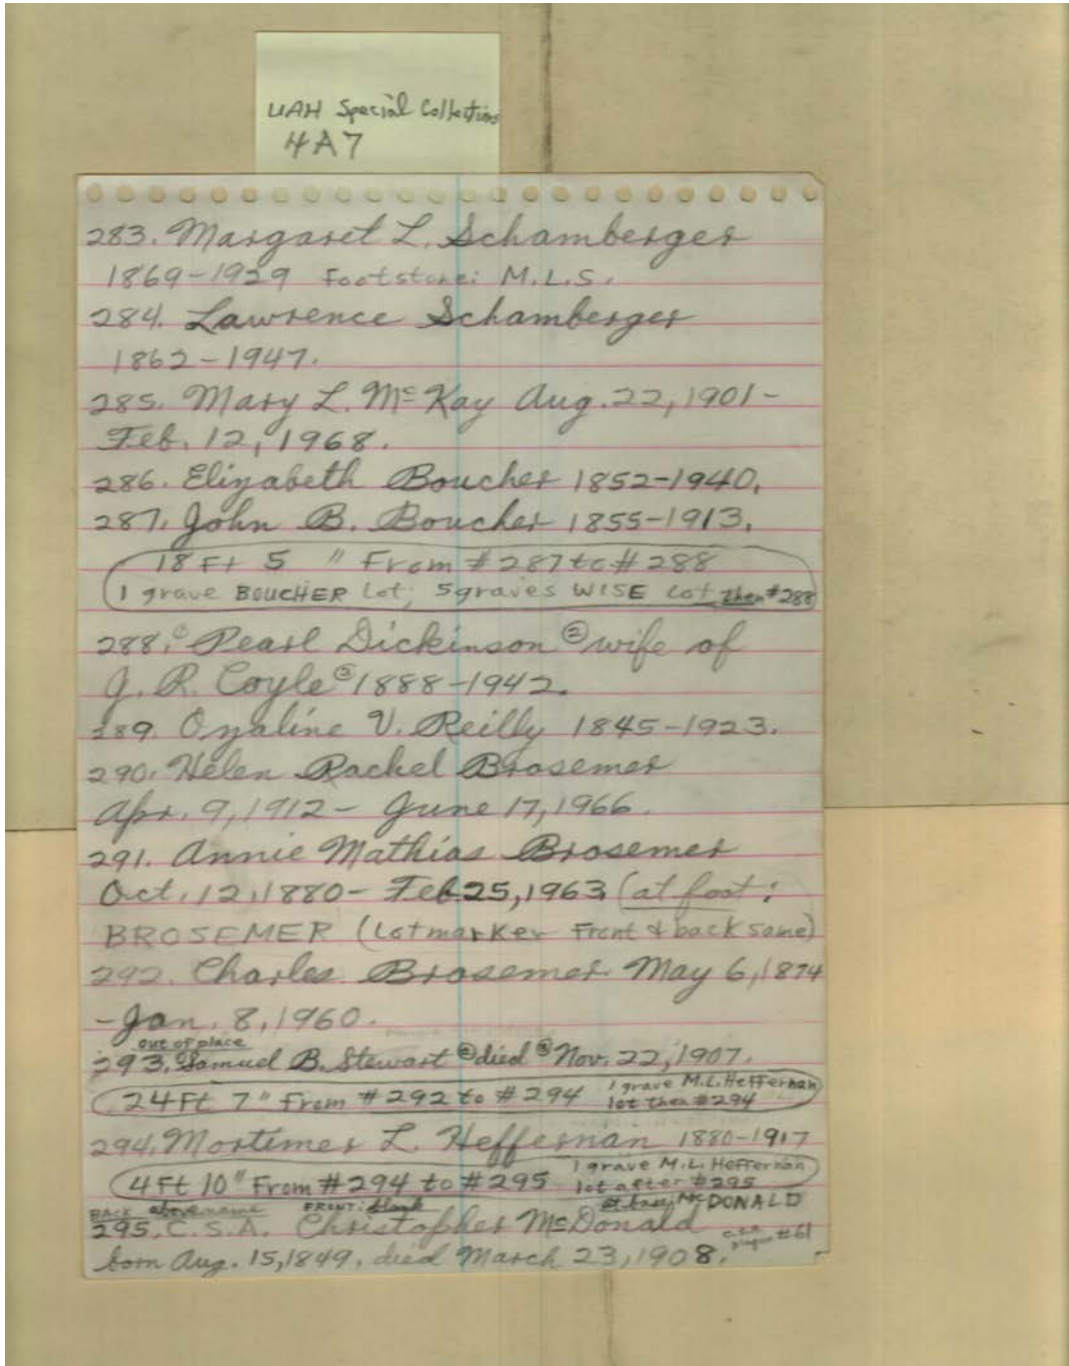 UAH Special Collections
4A7
283. Margaret L. Schamberger
1869-1929 Footstone: M.L.S.
284. Lawrence Schamberger
1862-1947.
285. Mary L. McKay Aug. 22, 1901-
Feb. 12, 1968.
286. Elizabeth Boucher 1852-1940.
287. John B. Boucher 1855-1913.
18 Ft 5 " From #287 to #288
1 grave BOUCHER Lot; 5 graves WISE Lot then #288
288. ① Pearl Dickinson ② wife of
J. R. Coyle ③ 1888-1942.
289. Ozaline V. Reilly 1845-1923.
290. Helen Rachel Brosemer
Apr. 9, 1912 - June 17, 1966.
291. Annie Mathias Brosemer
Oct. 12, 1880 - Feb 25, 1963 (at foot:
BROSEMER (Lotmarker Front & back same)
292. Charles Brosemer May 6, 1874
-Jan. 8, 1960.
out of place
293. Samuel B. Stewart ② died ③ Nov. 22, 1907.
24 Ft 7" From #292 to #294 1 grave M.L. Heffernan
lot then #294
294. Mortimer L. Heffernan 1880-1917
4 Ft 10" From #294 to #295 1 grave M.L. Heffernan
lot after #295
BACK above name FRONT: blank at base: McDONALD
295. C.S.A. Christopher McDonald
C.S.A. plaque #61
born Aug. 15, 1849, died March 23, 1908.